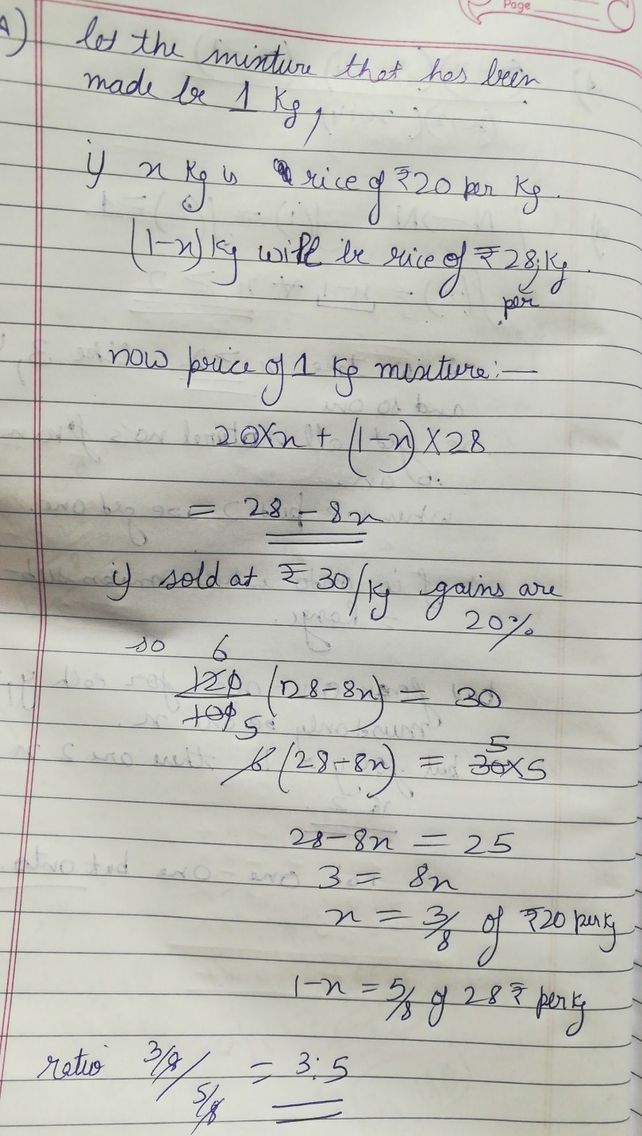 Page
A) let the mixture that has been
made be 1 Kg,
if x Kg is rice of ₹20 per Kg.
(1-x) Kg will be rice of ₹28 per Kg.
now price of 1 Kg mixture:—
20×x + (1-x)×28
= 28 - 8x
if sold at ₹30/Kg gains are
20%
so 6
120/100 5 (28-8x) = 30
6 (28-8x) = 30×5 5
28-8x = 25
3 = 8x
x = 3/8 of ₹20 per kg
1-x = 5/8 of 28₹ per kg
ratio 3/8 / 5/8 = 3:5